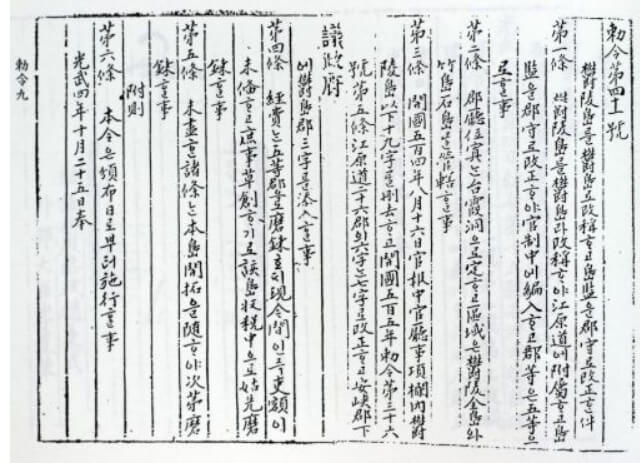 勅令第四十一號
鬱陵島를鬱島로改稱하고島監을郡守로改正한件
第一條 鬱陵島를鬱島라改稱하야江原道에附屬하고島
監을郡守로改正하야官制中에編入하고郡等은五等으
로할事
第二條 郡廳位寘는台霞洞으로定하고區域은鬱陵全島와
竹島石島를管轄할事
第三條 開國五百四年八月十六日官報中官廳事項欄內鬱
陵島以下十九字를刪去하고開國五百五年勅令第三十六
號第五條江原道二十六郡의六字는七字로改正하고安峽郡下
議政府
에鬱島郡三字를添入할事
第四條 經費는五等郡으로磨鍊호되現今間인즉吏額이
未備하고庶事草創하기로該島收稅中으로姑先磨
鍊할事
第五條 未盡한諸條는本島開拓을隨하야次第磨
鍊할事
附則
第六條 本令은頒布日로부터施行할事
光武四年十月二十五日奉
勅令九